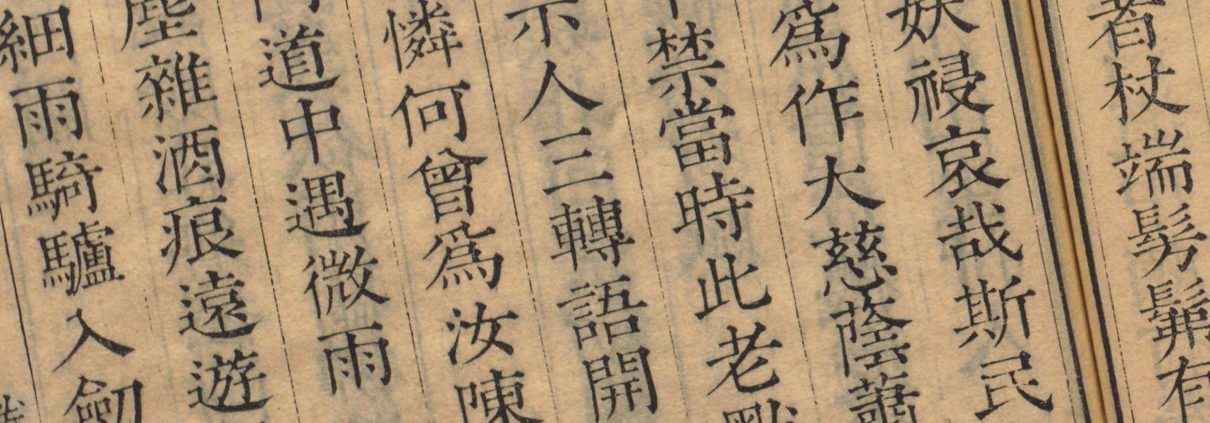 者杖端髣髴有
妖祲哀哉斯民
爲作大慈蔭
禁當時此老
示人三轉語開
憐何曾爲汝
道中遇微雨
塵雜酒痕遠遊
細雨騎驢入劒